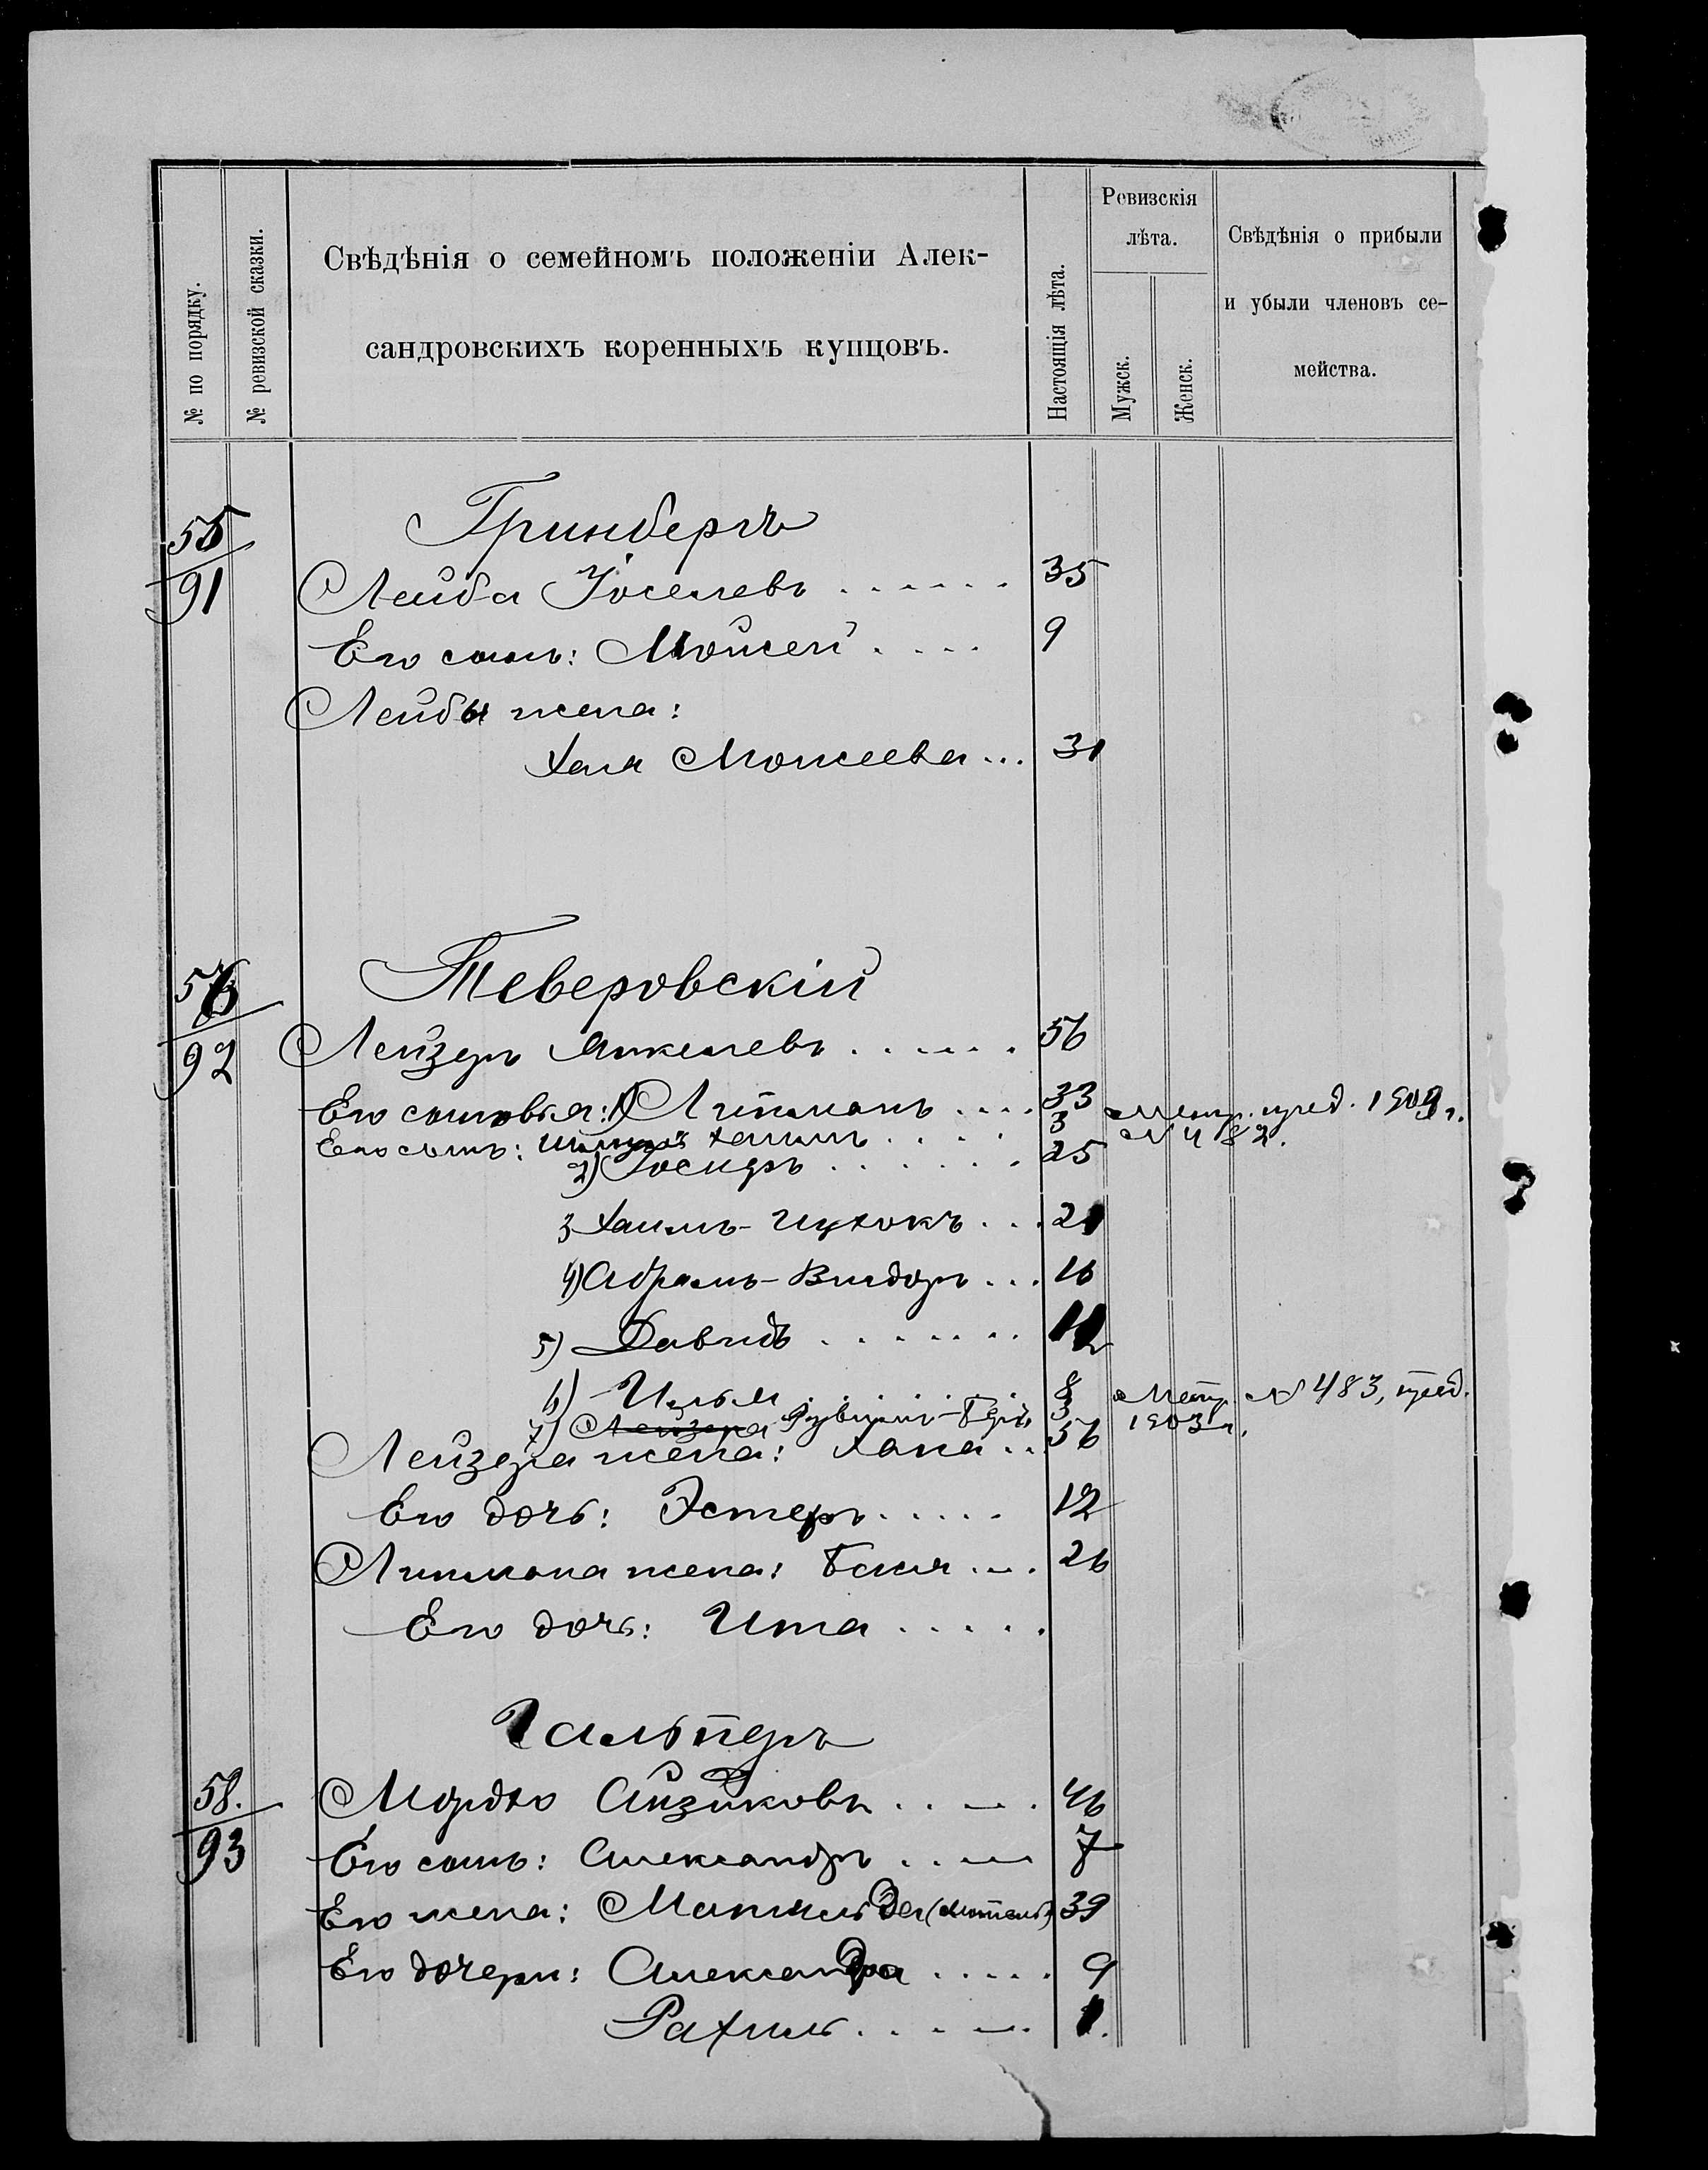 № по порядку.
№ ревизской сказки.
Свѣдѣнія о семейномъ положеніи Алек-
сандровскихъ коренныхъ купцовъ.
Настоящія лѣта.
Ревизскія
лѣта.
Мужск.
Женск.
Свѣдѣнія о прибыли
и убыли членовъ се-
мейства.
Гринбергъ
55
91
Лейба Іоселевъ . . . . . . 35
Его сынъ: Моисей . . . . 9
Лейбы жена:
Хая Моисеева ... 31
Теверовскій
56
92
Лейзеръ Янкелевъ . . . . . . 56
Его сыновья: 1) Липманъ .... 33 Метр. пред. 1909 г.
Его сынъ: Хаимъ . . . . 3 № 482.
2) Іосифъ . . . . . . . 25
3 Хаимъ-Ицхокъ ... 21
4) Абрамъ-Вигдоръ ... 16
5) Давидъ . . . . . . . 12
6) Илья . . . . . 8 Метр. № 483, пред.
7) Лейзера Рувимъ-Беръ 3 1903 г.
Лейзера жена: Хана .. 56
Его дочь: Эстеръ . . . . . 12
Липмана жена: Бася .... 26
Его дочь: Ита . . . . .
Гальперъ
58.
93
Мордко Айзиковъ . . — . 46
Его сынъ: Александръ . . — 7
Его жена: Матильда 39
Его дочери: Александра . . . . . 9
Рахиль . . . — . 1.